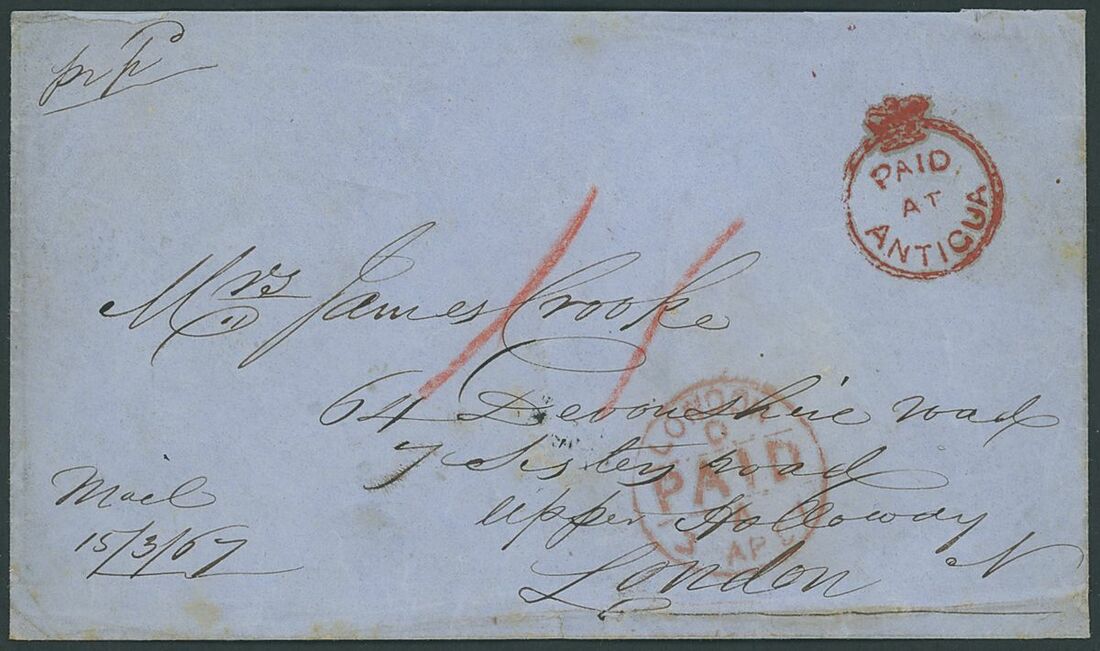 PAID
AT
ANTIGUA
Mrs James Crooke
64 Devonshire road
7 Sisters road
upper Holloway
London N
Mail
15/3/67
LONDON
PAID
AP